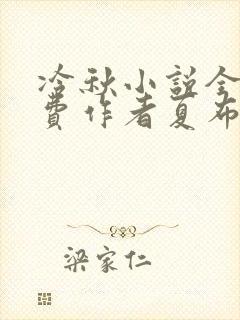 冷秋小説全
費作者夏布
梁家仁